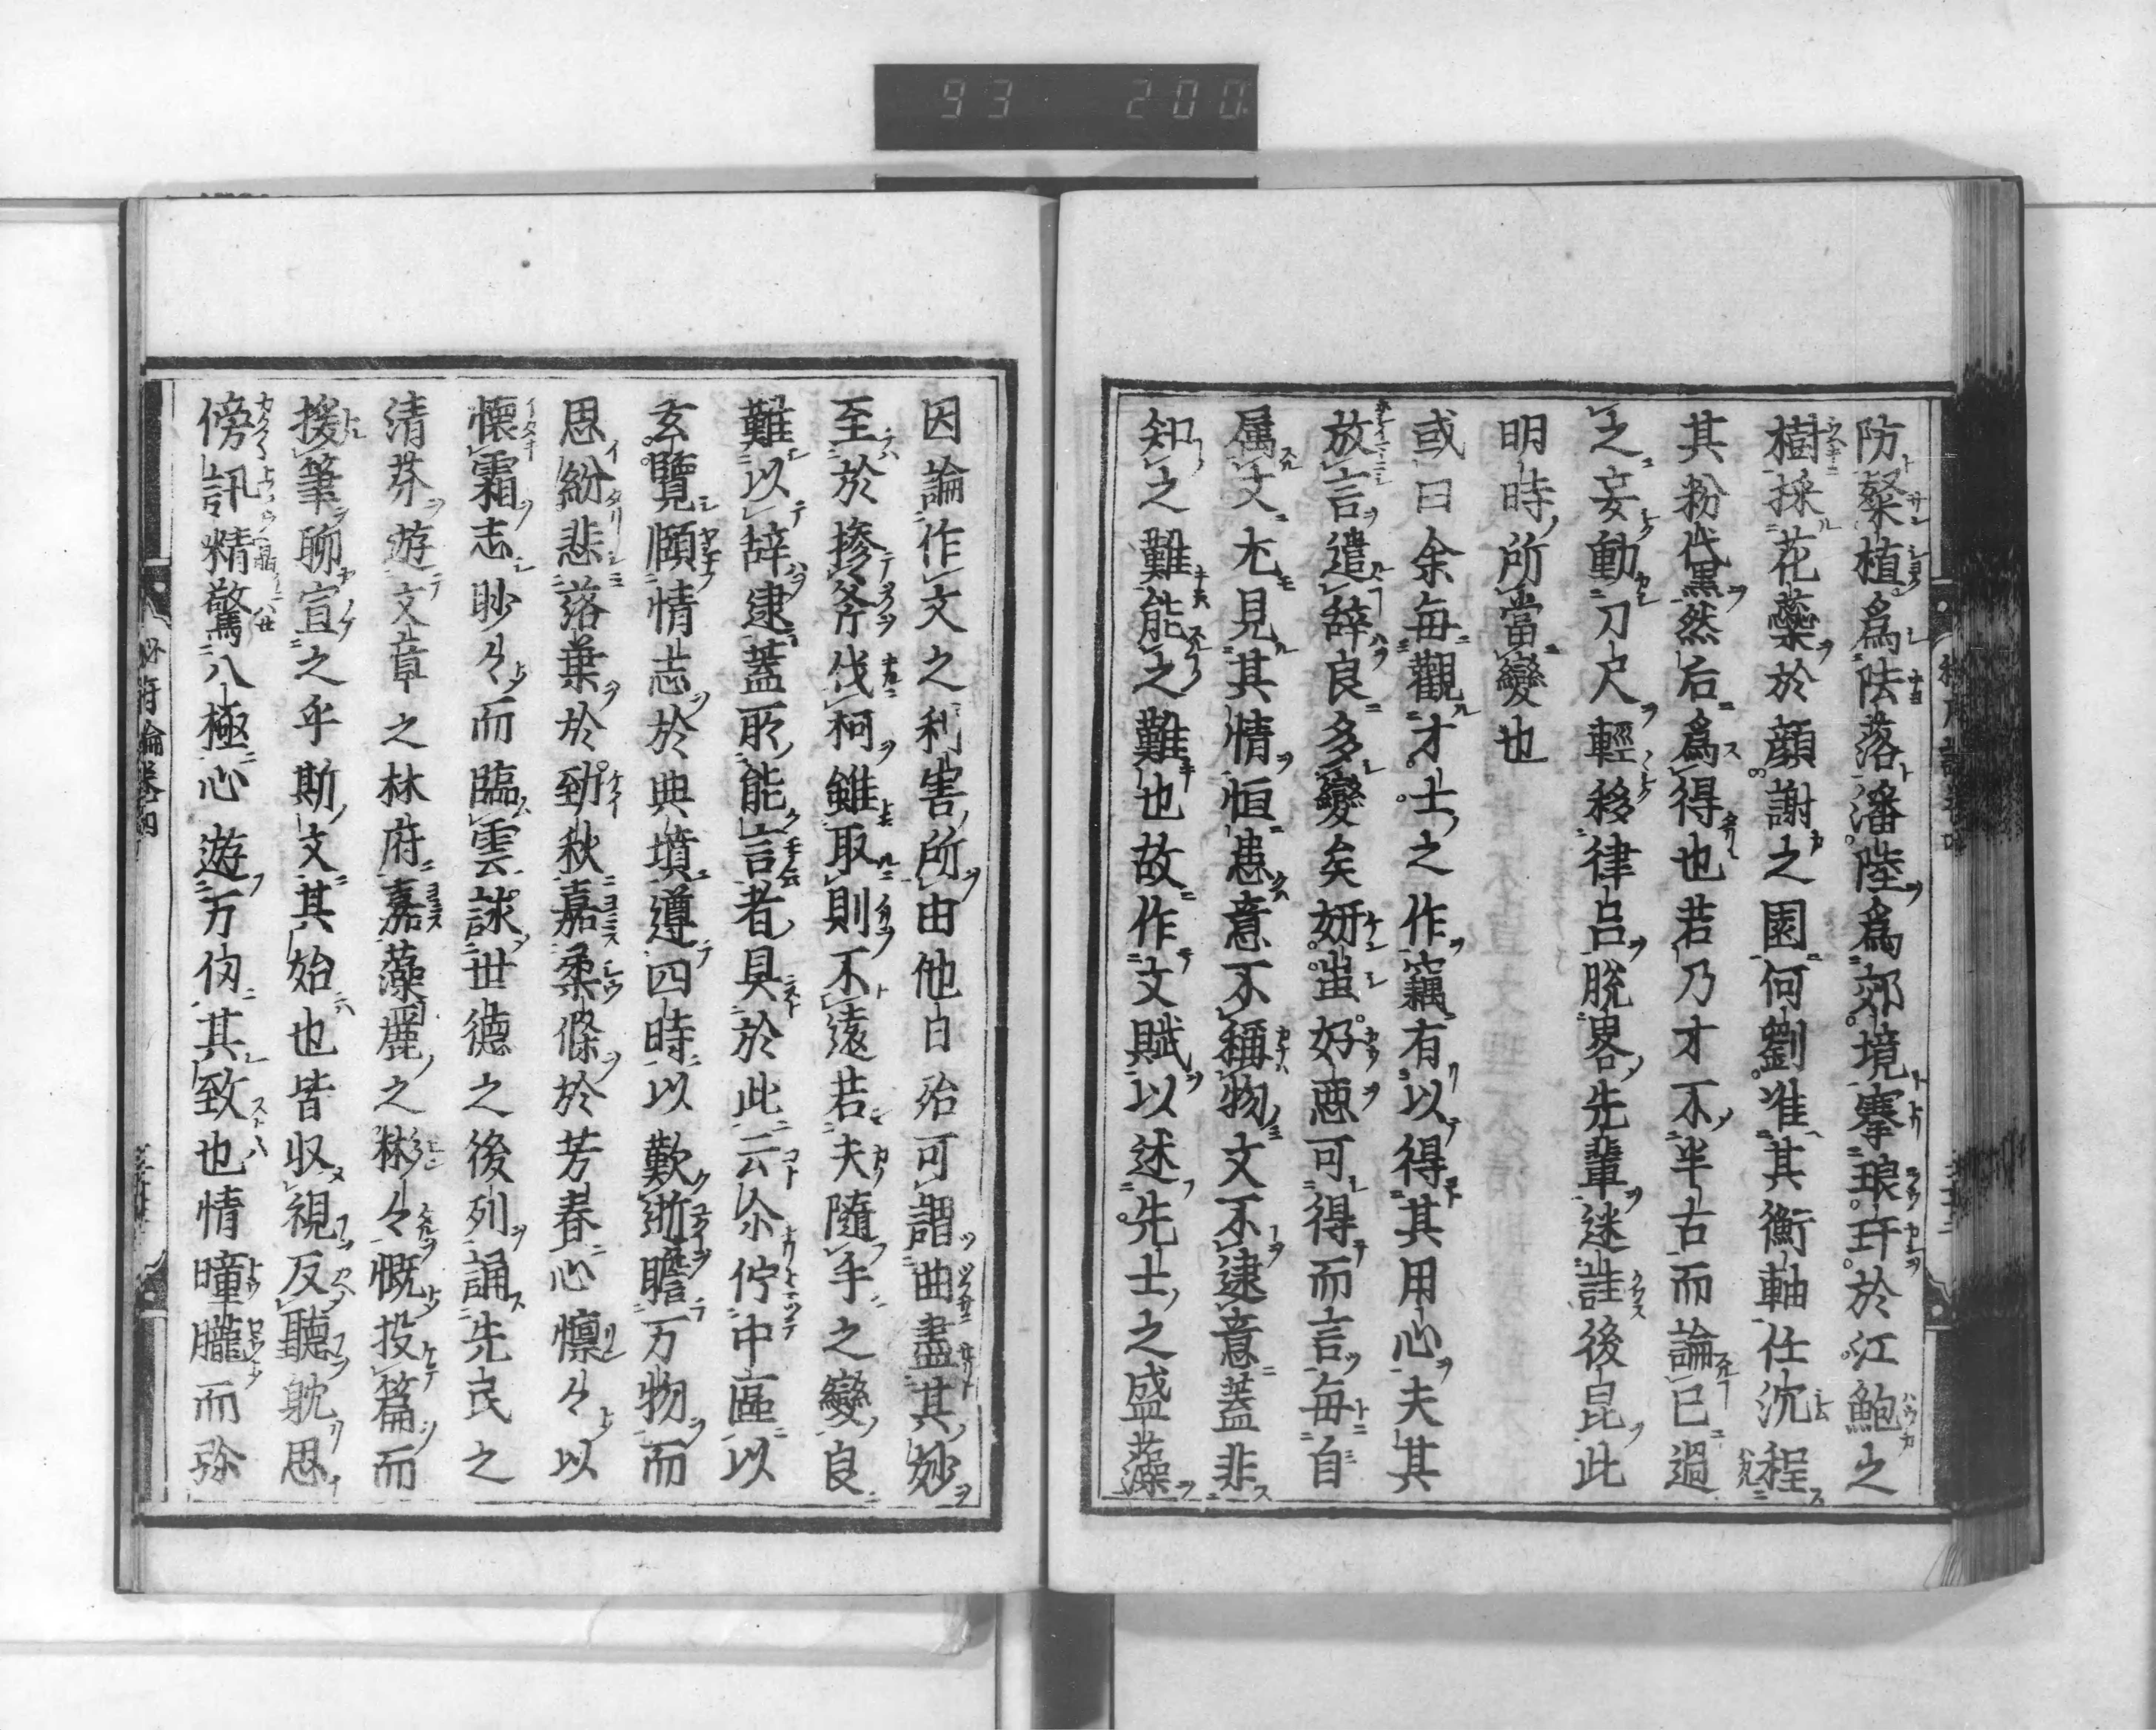 93 200
防粲植爲陸落潘陸爲郊境搴琅玕於江鮑之
樹採花蘂於顔謝之園何劉准其衡軸任沈程
其粉黛然后爲得也若乃才不半古而論已過
之妄動刀尺輕移律呂脱畧先輩迷詿後昆此
明時所當變也
或曰余毎觀才士之作竊有以得其用心夫其
放言遣辞良多變矣妍蚩好惡可得而言毎自
属文尤見其情恒患意不稱物文不逮意蓋非
知之難能之難也故作文賦以述先士之盛藻
因論作文之利害所由他日殆可謂曲盡其妙
至於操斧伐柯雖取則不遠若夫隨手之變良
難以辞逮蓋所能言者具於此云佘佇中區以
玄覽頤情志於典墳遵四時以歎逝瞻万物而
思紛悲落葉於勁秋嘉柔條於芳春心懍々以
懷霜志眇々而臨雲詠世德之後列誦先民之
清芬遊文章之林府嘉藻麗之彬々慨投篇而
援筆聊宣之乎斯文其始也皆収視反聽躭思
傍訊精驚八極心遊万仭其致也情曈朧而弥